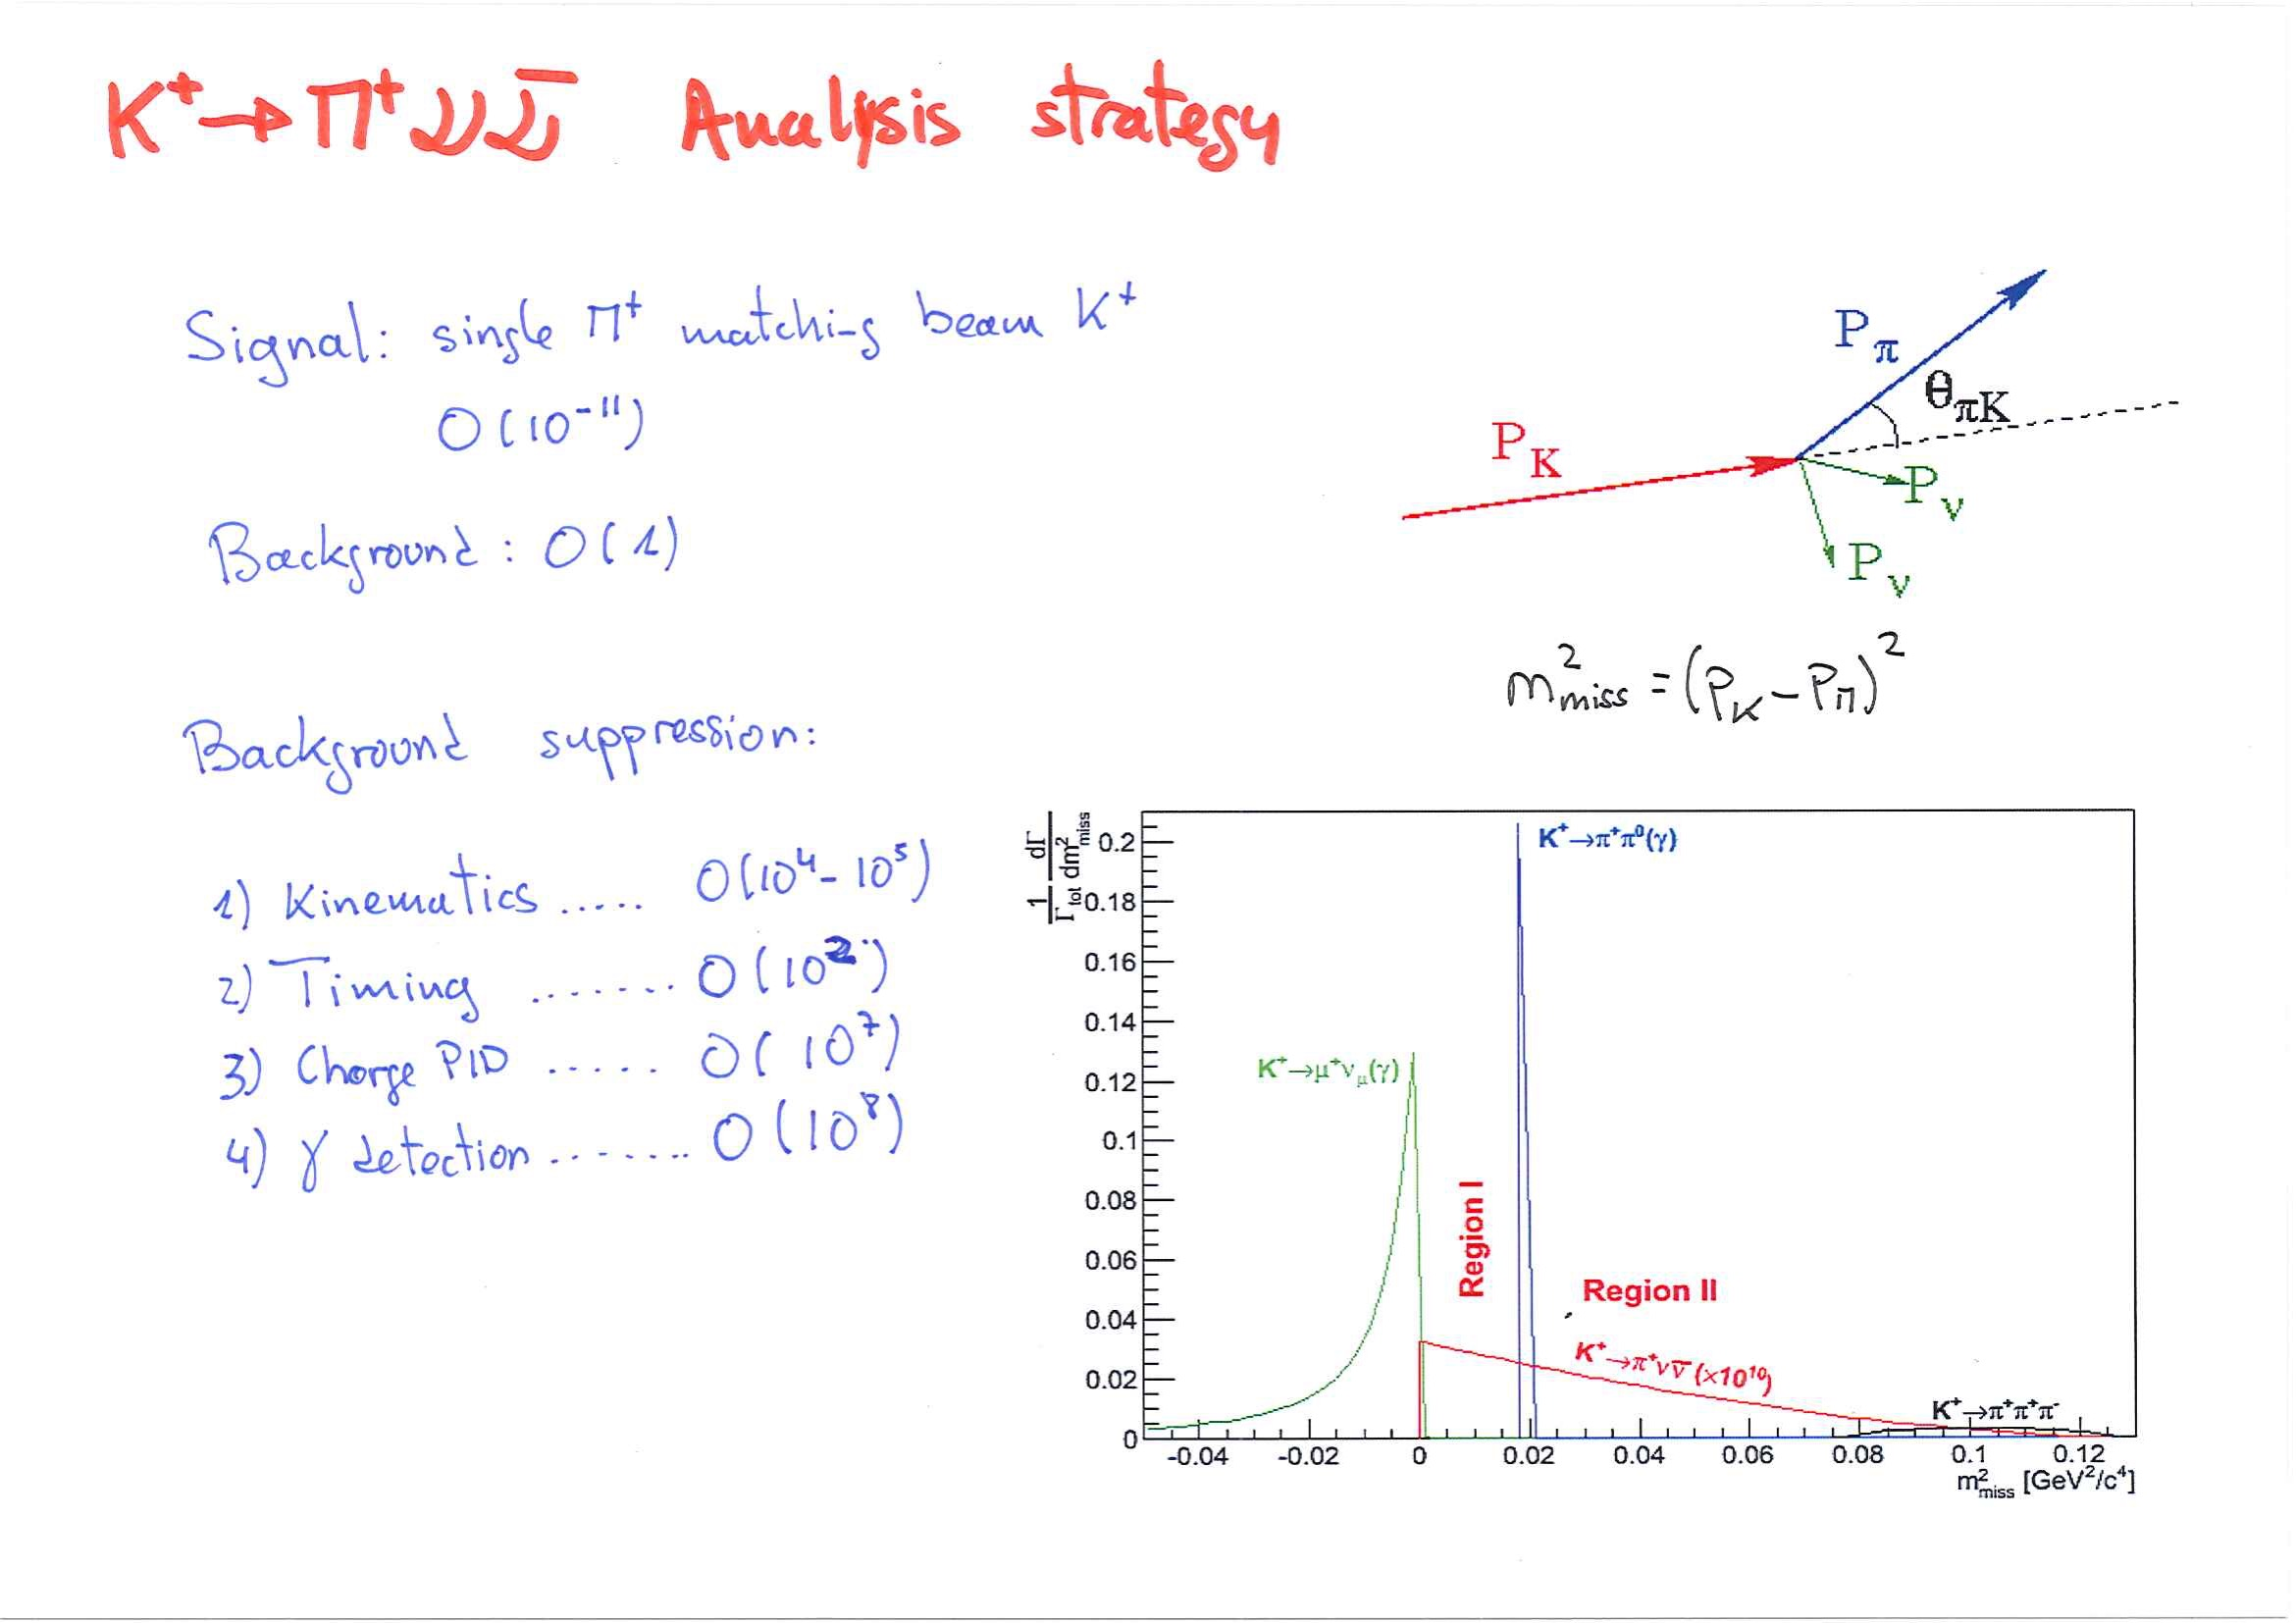 K⁺→Π⁺νν̄ Analysis strategy
Signal: single Π⁺ matching beam K⁺
O(10⁻¹¹)
Background: O(1)
Background suppression:
1) Kinematics ..... O(10⁴-10⁵)
2) Timing ....... O(10²)
3) Charge PID ..... O(10⁷)
4) γ detection ....... O(10⁸)
P_K
P_π
θ_πK
P_ν
P_ν
m²_miss = (P_K - P_Π)²
1/Γ_tot dΓ/dm²_miss
0.2
0.18
0.16
0.14
0.12
0.1
0.08
0.06
0.04
0.02
0
K⁺→π⁺π⁰(γ)
K⁺→μ⁺ν_μ(γ)
Region I
Region II
K⁺→π⁺νν̄ (×10¹⁰)
K⁺→π⁺π⁺π⁻
-0.04 -0.02 0 0.02 0.04 0.06 0.08 0.1 0.12
m²_miss [GeV²/c⁴]